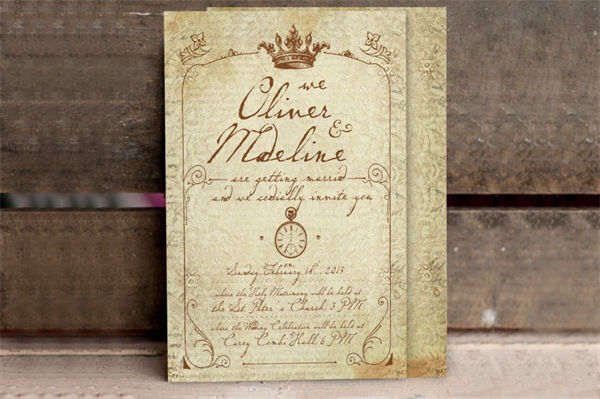 we
Oliver
&
Madeline
are getting married
and we codially invite you
on
Sunday February 18th, 2013
where the Holy Matrimony will be held at
the St Peter's Church, 3 PM
where the Wedding Celebration will be held at
Carey Combe Hall 6 PM